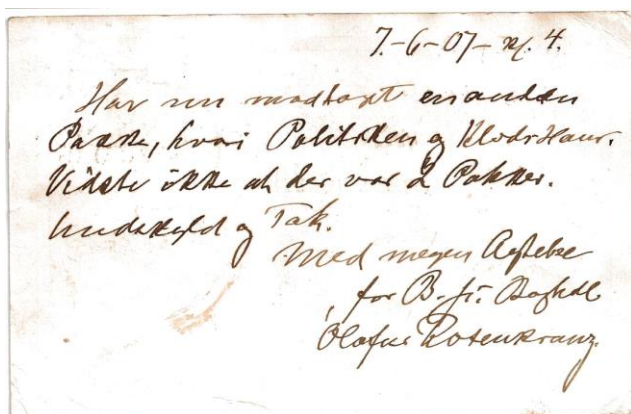 7.-6-07- kl. 4.
Har nu modtaget en anden
Pakke, hvori Politiken og Klods Hans.
Vidste ikke at der var 2 Pakker.
Undskyld og Tak.
Med megen Agtelse
for B. Boghdl
Ólafur Rosenkranz.